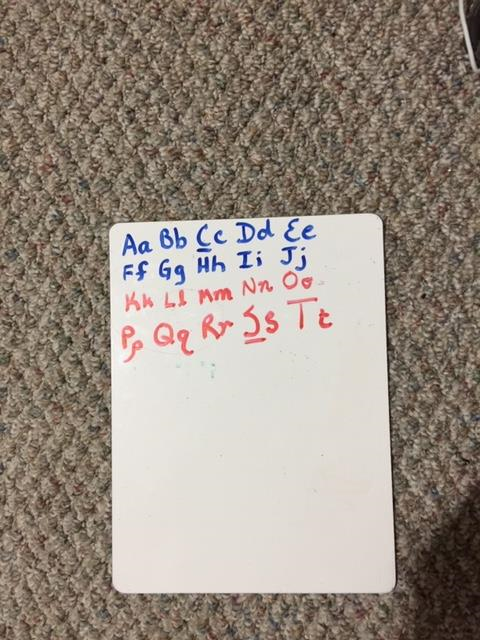 Aa Bb Cc Dd Ee
Ff Gg Hh Ii Jj
Kk Ll Mm Nn Oo
Pp Qq Rr Ss Tt